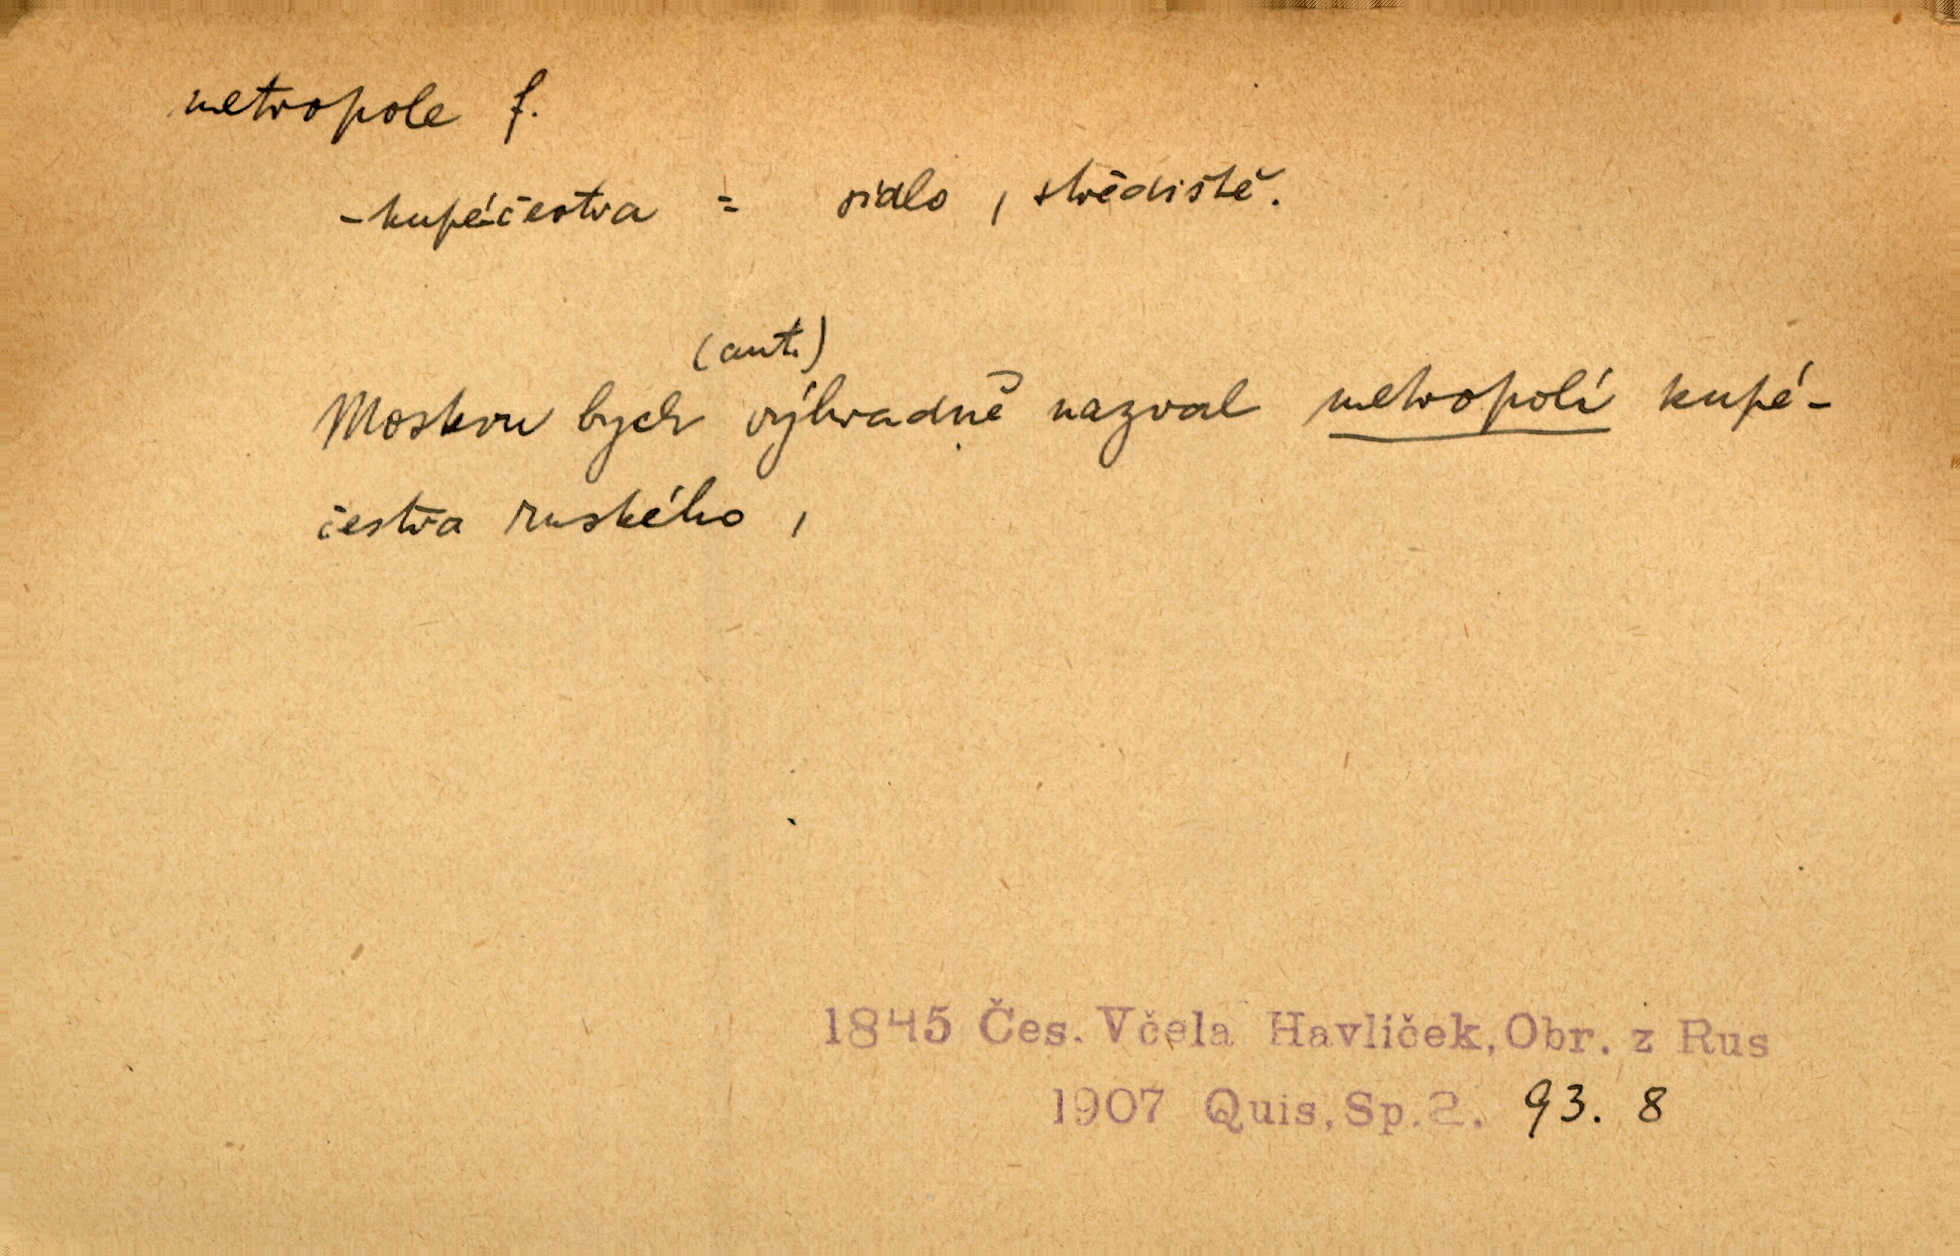 metropole f.
- kupéčestva = sídlo, střediště.
(aut.)
Moskvu bych výhradně nazval metropolí kupé-
čestva ruského,
1845 Čes. Včela Havlíček, Obr. z Rus
1907 Quis, Sp.2. 93. 8